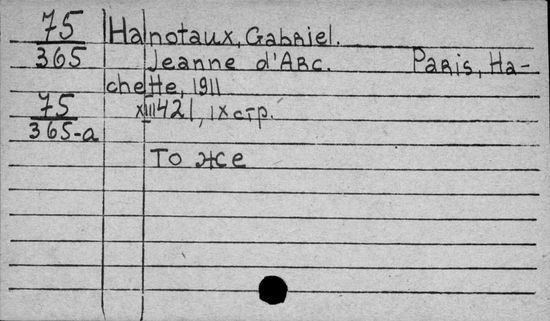 75 Hanotaux, Gabriel.
365 Jeanne d'Arc. Paris, Ha-
chette, 1911
75 XIII 421, IX стр.
365-a
То же